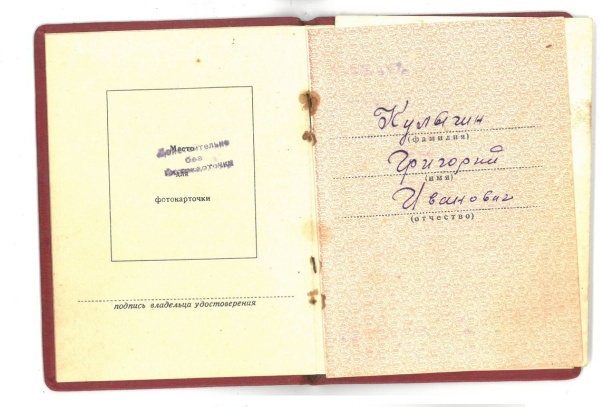 Место
Действительно
без
фотокарточки
для
фотокарточки
подпись владельца удостоверения
Кулыгин
(фамилия)
Григорий
(имя)
Иванович
(отчество)